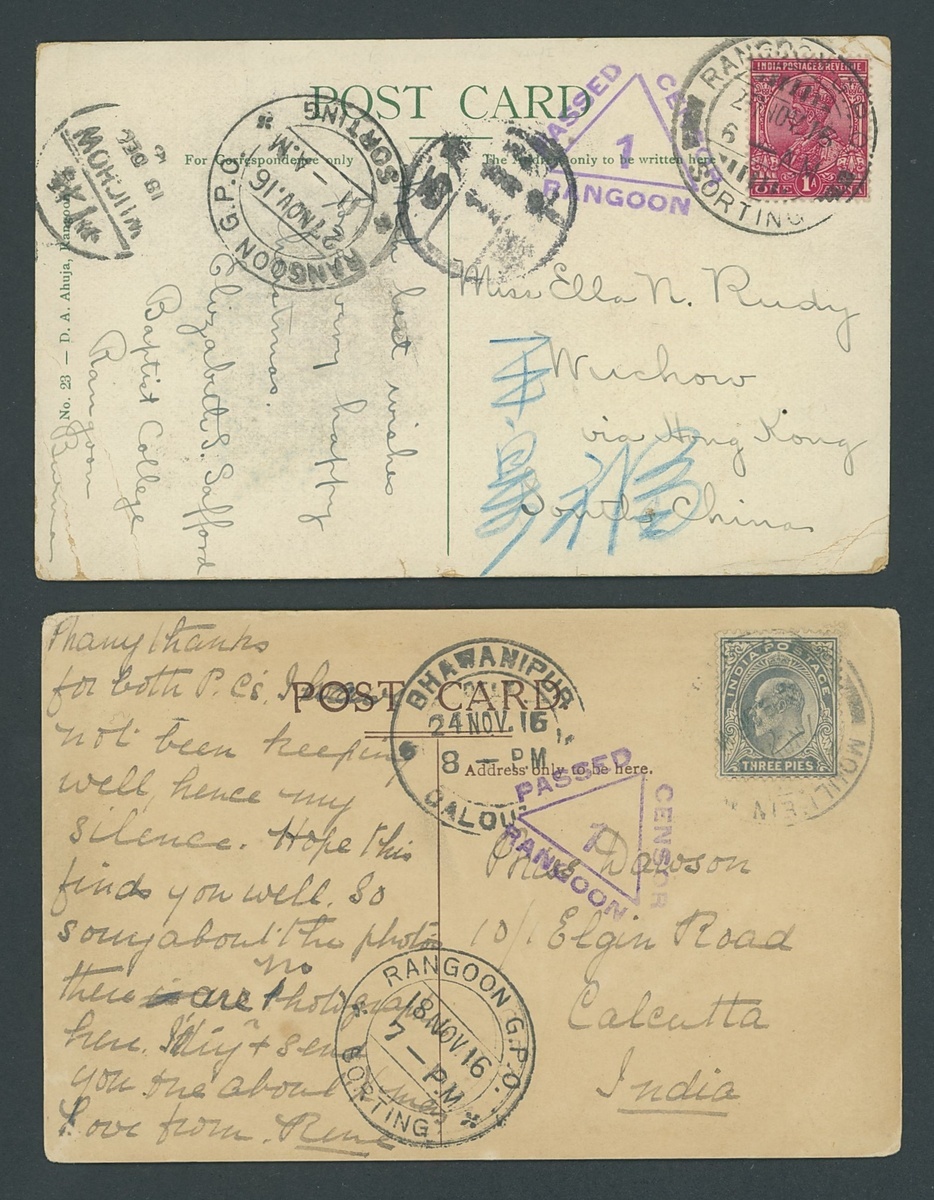 POST CARD
For Correspondence only
The Address only to be written here
No. 23 — D. A. Ahuja, Rangoon
PASSED CENSOR
1
RANGOON
RANGOON
SORTING
INDIA POSTAGE & REVENUE
ONE 1A ANNA
RANGOON G.P.O.
27 NOV. 16
A.M.
SORTING
WUCHOW
DEC
best wishes
very happy
Elizabeth S. Safford
Baptist College
Rangoon
Burma
Miss Ella N. Rudy
Wuchow
via Hong Kong
South China
POST CARD
Address only to be here.
INDIA POSTAGE
THREE PIES
MOULMEIN
BHAWANIPUR
24 NOV. 16
8 — PM
PASSED CENSOR
RANGOON
RANGOON G.P.O.
18 NOV. 16
7 — P.M.
SORTING
Many thanks
for both P.C's. I
not been keeping
well, hence my
silence. Hope this
finds you well. So
sorry about the photos
there are no
here.
you one about
Love from. Rene
Dawson
10/1 Elgin Road
Calcutta
India